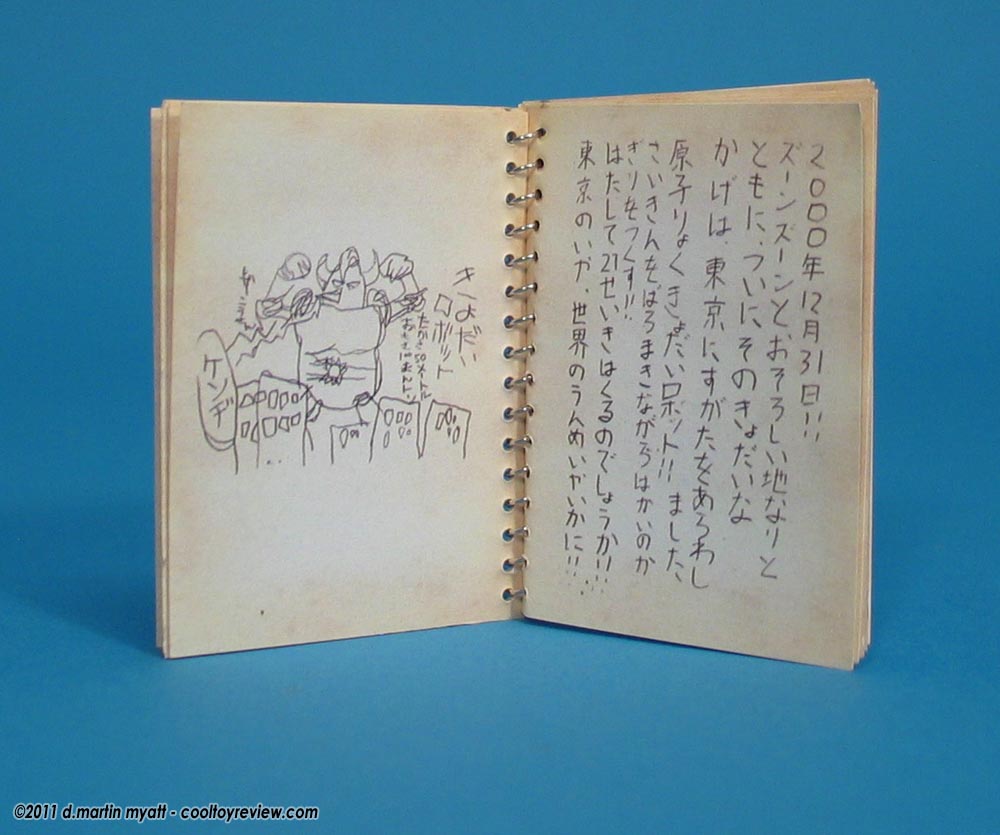 2000年12月31日!!
ズーンズーンと、おそろしい地なりと
ともに、ついに、そのきょだいな
かげは、東京にすがたをあらわし
ました、
原子りょくきょだいロボット!!
さいきんをばらまきながらはかいのか
ぎりをつくす!!
はたして21せいきはくるのでしょうか!!
東京のいや、世界のうんめいやいかに!!
きょだい
ロボット
たかさ50メートル
ケンヂ
©2011 d.martin myatt - cooltoyreview.com